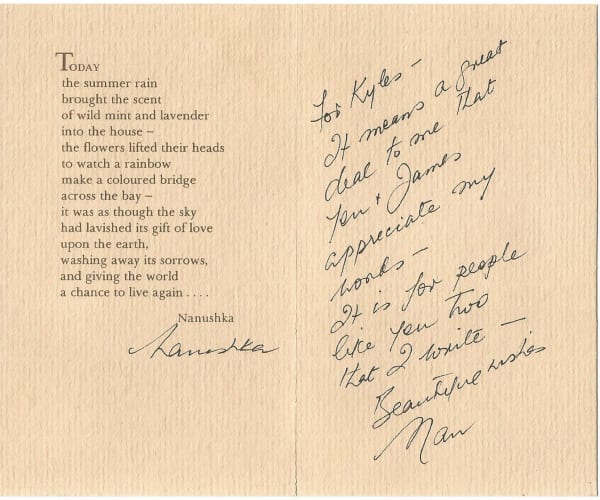 TODAY
the summer rain
brought the scent
of wild mint and lavender
into the house –
the flowers lifted their heads
to watch a rainbow
make a coloured bridge
across the bay –
it was as though the sky
had lavished its gift of love
upon the earth,
washing away its sorrows,
and giving the world
a chance to live again . . . .
Nanushka
Nanushka
For Kyles –
It means a great
deal to me that
you + James
appreciate my
words –
It is for people
like you two
that I write –
Beautiful wishes
Nan